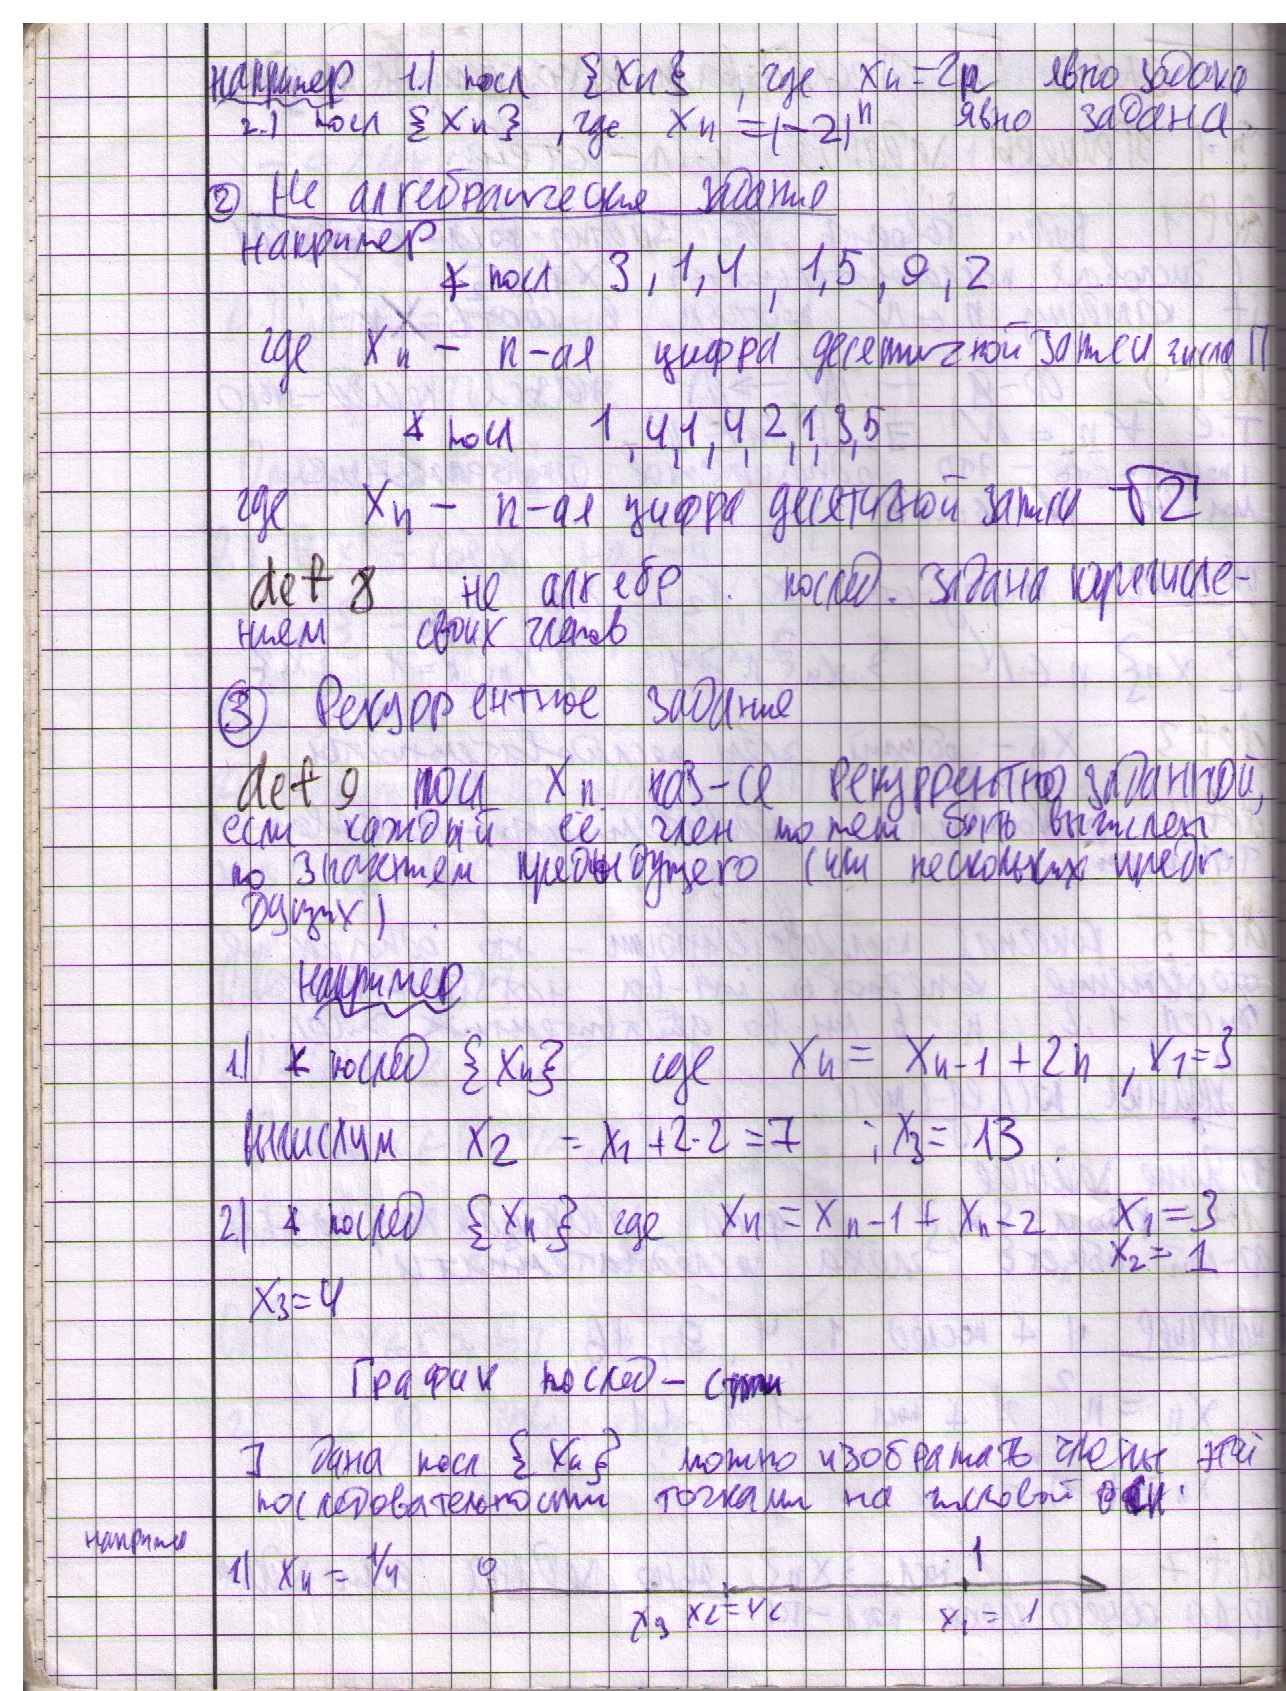 например 1.) посл {Xn} , где Xn = 2n явно задана
2.) посл {Xn} , где Xn = (-2)^n явно задана.
② Не алгебраическия задания
например
* посл 3, 1, 4, 1, 5, 9, 2
где Xn - n-ая цифра десятичной записи числа П
* посл 1, 4, 1, 4, 2, 1, 3, 5
где Xn - n-ая цифра десятичной записи √2
def 8 не алгебр. послед. задана перечисле-
нием своих членов
③ Рекуррентное задание
def 9 посл Xn наз-ся рекуррентно заданной,
если каждый её член может быть вычислен
по значениям предыдущего (или нескольких преды
дущих)
например
1) * послед {Xn} где Xn = Xn-1 + 2n , X1=3
Вычислим X2 = X1 + 2·2 = 7 ; X3 = 13.
2) * послед {Xn} где Xn = Xn-1 + Xn-2 X1 = 3
X2 = 1
X3 = 4
График послед-сти
] дана посл {Xn} можно изобразить члены этой
последовательности точками на числовой оси.
например
1) Xn = 1/n 0 1
X3 X2=1/2 X1 = 1